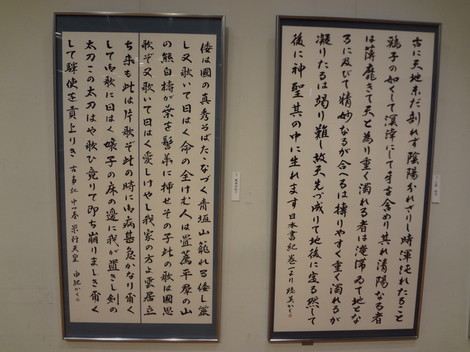 古に天地未だ剖れず陰陽分れざりし時渾沌れたること
鶏子の如くして溟涬にして牙を含めり其れ清陽なる者
は薄靡きて天と為り重く濁れる者は淹滞ゐて地とな
るに及びて精妙なるが合へるは摶りやすく重く濁れるが
凝りたるは竭り難し故天先づ成りて地後に定る然して
後に神聖其の中に生れます 日本書紀巻一より
倭は國の真秀ろばたたなづく青垣山籠れる倭し麗
し又歌いて曰はく命の全けむ人は畳薦平群の山
の熊白檮が葉を髻華に挿せその子此の歌は國思
歌ぞ又歌いて曰はく愛しけやし我家の方よ雲居立
ち来も此は片歌ぞ此の時に御病甚急かなり爾く
して御歌に曰はく嬢子の床の邊に我が置きし剣の
太刀この太刀はや歌ひ竟りて即ち崩りましき爾く
して驛使を貢上りき 古事記 中つ巻 景行天皇